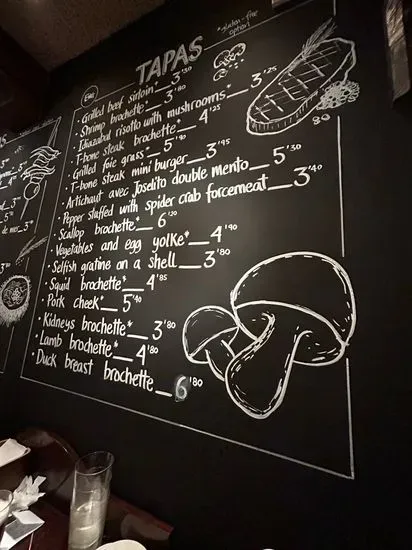 TAPAS
*gluten-free
option
ENG
· Grilled beef sirloin__3'30
· Shrimp brochette*__3'80
· Idiazabal risotto with mushrooms*__3'25
· T-bone steak brochette*__4'25
· Grilled foie grass*__5'90
· T-bone steak mini burger__3'95
· Artichaut avec Joselito double mento__5'30
· Pepper stuffed with spider crab forcemeat__3'40
· Scallop brochette*__6'20
· Vegetables and egg yolke*__4'90
· Selfish gratine on a shell__3'80
· Squid brochette*__4'85
· Pork cheek*__5'40
· Kidneys brochette*__3'80
· Lamb brochette*__4'80
· Duck breast brochette__6'80